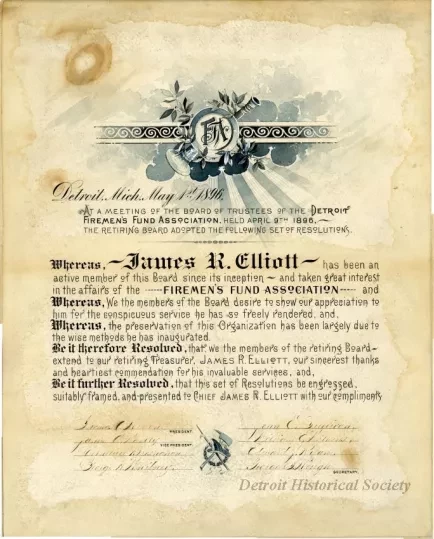 Detroit, Mich. May 1st 1896.
AT A MEETING OF THE BOARD OF TRUSTEES OF THE DETROIT
FIREMEN'S FUND ASSOCIATION, HELD APRIL 9TH 1896,
THE RETIRING BOARD ADOPTED THE FOLLOWING SET OF RESOLUTIONS,
Whereas, James R. Elliott has been an
active member of this Board since its inception and taken great interest
in the affairs of the FIREMEN'S FUND ASSOCIATION and
Whereas, We the members of the Board desire to show our appreciation to
him for the conspicuous service he has so freely rendered, and,
Whereas, the preservation of this Organization has been largely due to
the wise methods he has inaugurated.
Be it therefore Resolved, that we the members of the retiring Board
extend to our retiring Treasurer, JAMES R. ELLIOTT, our sincerest thanks
and heartiest commendation for his invaluable services, and,
Be it further Resolved, that this set of Resolutions be engrossed,
suitably framed, and presented to CHIEF JAMES R. ELLIOTT with our compliments
PRESIDENT.
VICE PRESIDENT.
SECRETARY.
Detroit Historical Society